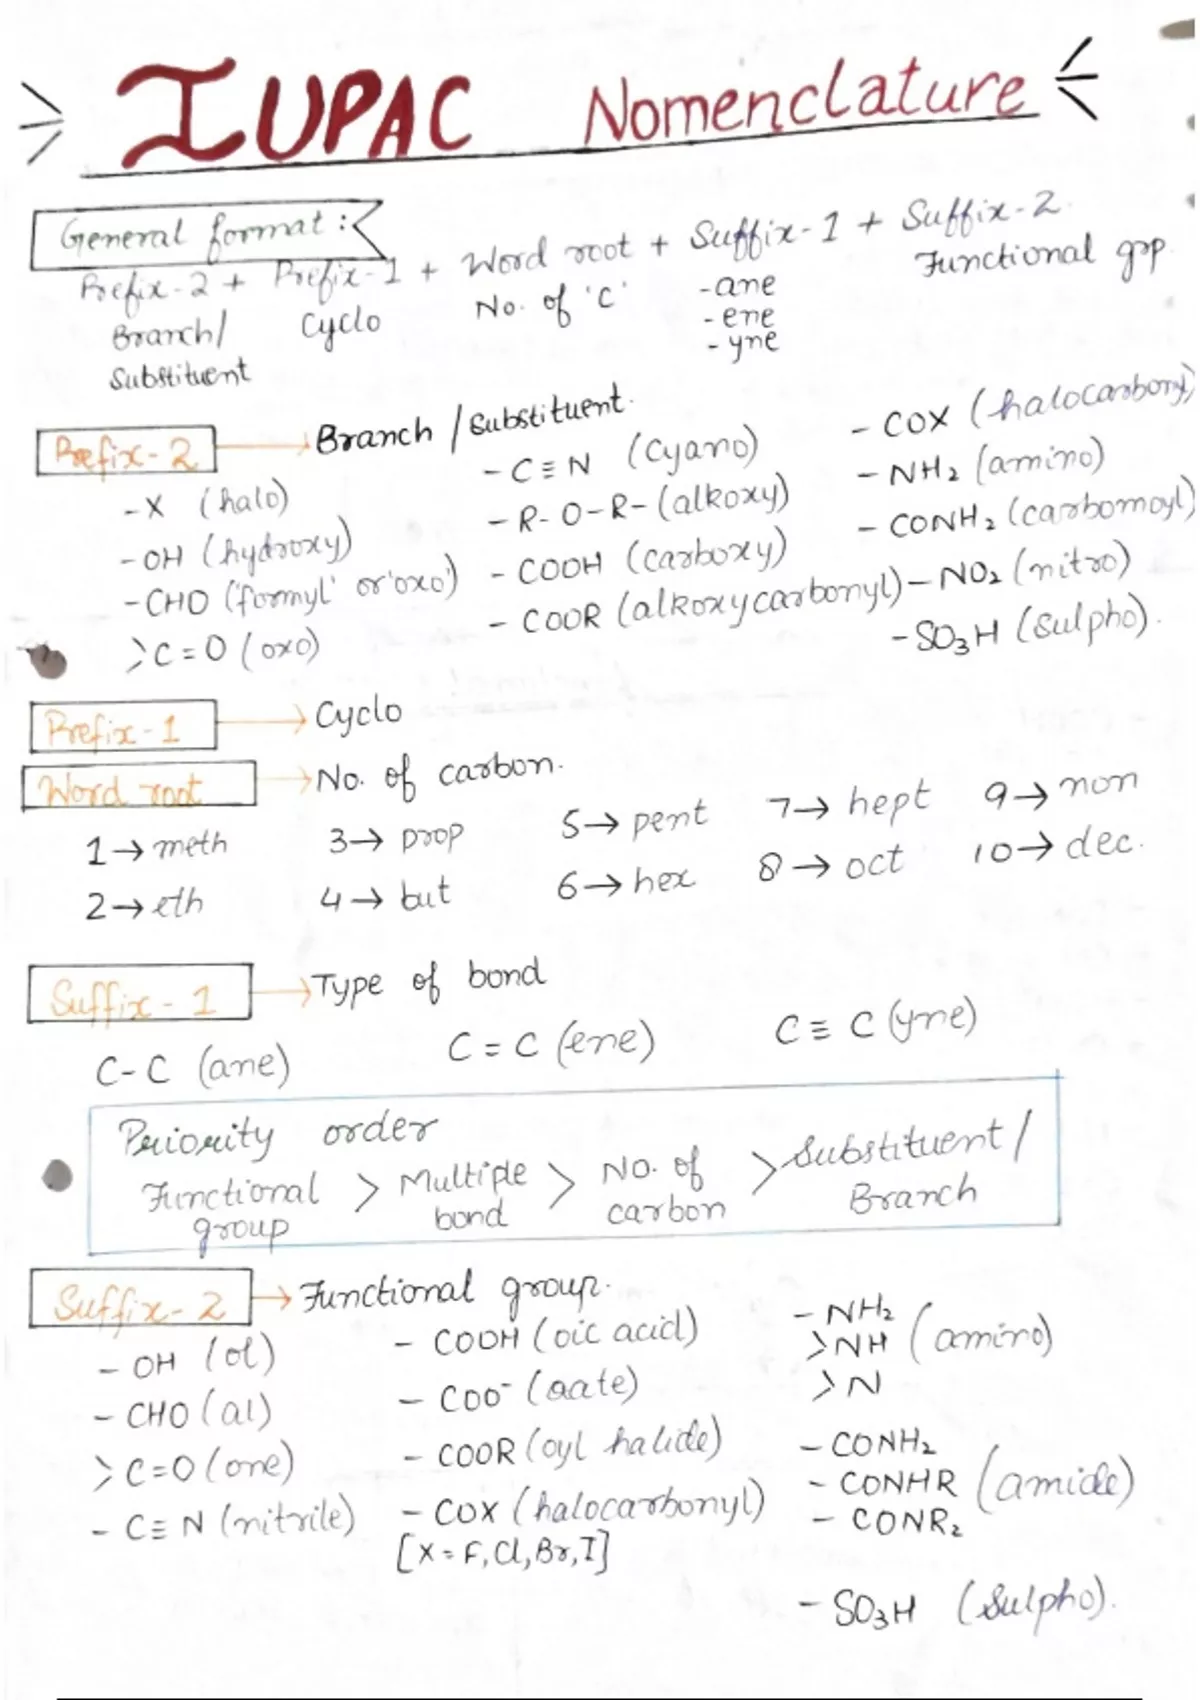 IUPAC Nomenclature
General format :
Prefix-2 + Prefix-1 + Word root + Suffix-1 + Suffix-2
Branch/ Substituent
Cyclo
No. of 'C'
-ane
-ene
-yne
Functional grp.
Prefix-2 → Branch / Substituent.
-X (halo)
-OH (hydroxy)
-CHO ('formyl' or 'oxo')
>C=O (oxo)
-C≡N (cyano)
-R-O-R- (alkoxy)
-COOH (carboxy)
-COOR (alkoxycarbonyl)
-COX (halocarbonyl)
-NH₂ (amino)
-CONH₂ (carbomoyl)
-NO₂ (nitro)
-SO₃H (sulpho).
Prefix-1 → Cyclo
Word root → No. of carbon.
1→meth 3→prop 5→pent 7→hept 9→non
2→eth 4→but 6→hex 8→oct 10→dec.
Suffix-1 → Type of bond
C-C (ane) C=C (ene) C≡C (yne)
Priority order
Functional group > Multiple bond > No. of carbon > Substituent / Branch
Suffix-2 → Functional group.
-OH (ol)
-CHO (al)
>C=O (one)
-C≡N (nitrile)
-COOH (oic acid)
-COO⁻ (oate)
-COOR (oyl halide)
-COX (halocarbonyl)
[X=F,Cl,Br,I]
-NH₂
>NH (amino)
>N
-CONH₂
-CONHR (amide)
-CONR₂
-SO₃H (Sulpho).